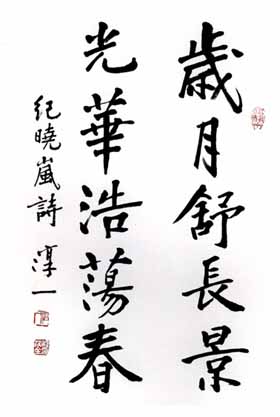 歲月舒長景
光華浩蕩春
紀曉嵐詩 淳一